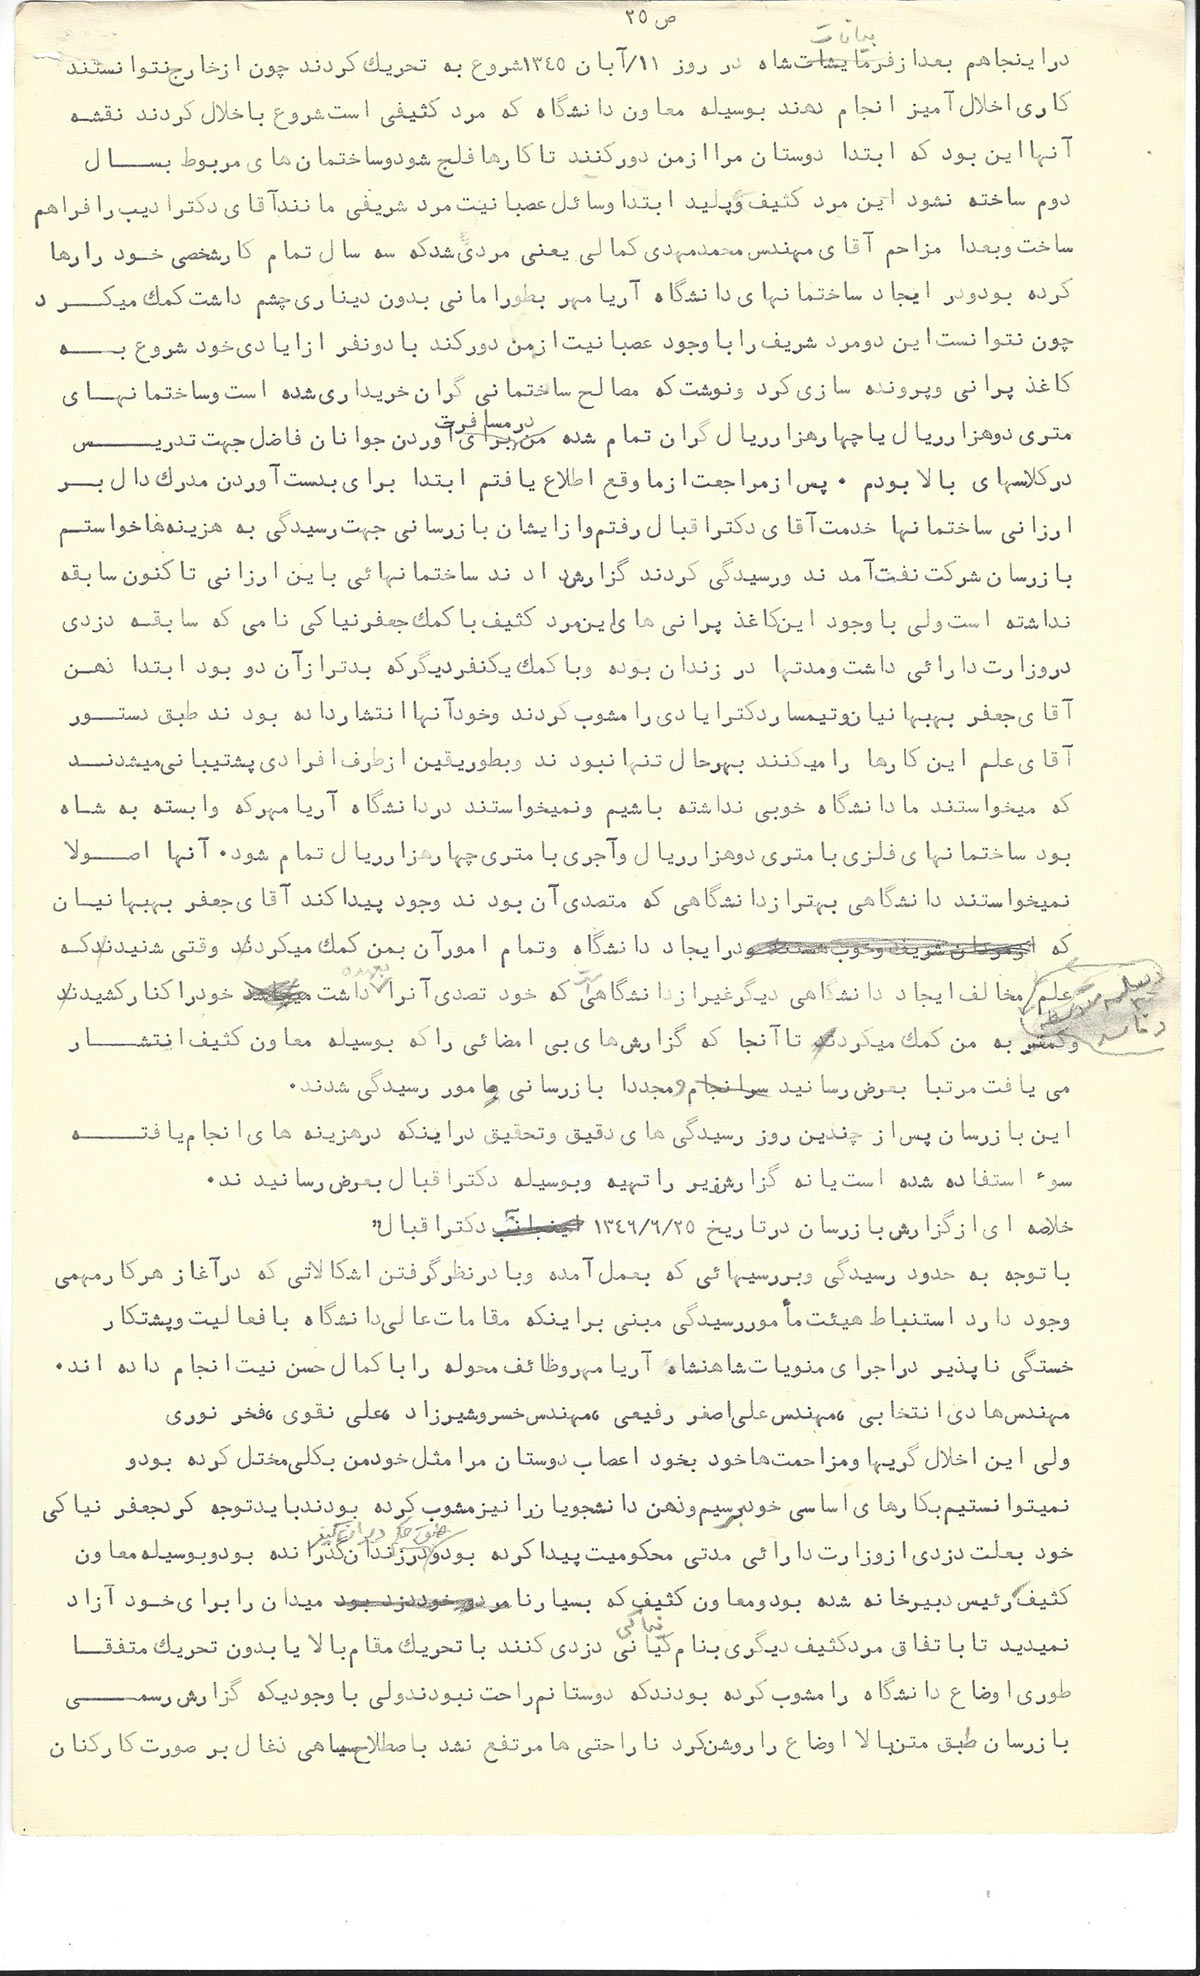 ص ٢٥
بیانات
دراینجاهم بعدازفرمایشات شاه در روز ١١/آبان ١٣٤٥ شروع به تحریك کردند چون ازخارج نتوانستند
کاری اخلال آمیز انجام دهند بوسیله معاون دانشگاه که مرد کثیفی است شروع باخلال کردند نقشه
آنها این بود که ابتدا دوستان مرا ازمن دورکنند تا کارها فلج شود و ساختمان های مربوط بسال
دوم ساخته نشود این مرد کثیف وپلید ابتدا وسائل عصبانیت مرد شریفی مانند آقای دکترادیب را فراهم
ساخت وبعدا مزاحم آقای مهندس محمدمهدی کمالی یعنی مردی شد که سه سال تمام کارشخصی خود را رها
کرده بود و در ایجاد ساختمانهای دانشگاه آریامهر بطورامانی بدون دیناری چشم داشت کمك میکرد
چون نتوانست این دومرد شریف را با وجود عصبانیت ازمن دورکند با دونفر از ایادی خود شروع به
کاغذ پرانی وپرونده سازی کرد ونوشت که مصالح ساختمانی گران خریداری شده است وساختمانهای
متری دوهزارریال یاچهارهزارریال گران تمام شده من درمسافرت برای آوردن جوانان فاضل جهت تدریس
درکلاسهای بالا بودم ٠ پس از مراجعت ازماوقع اطلاع یافتم ابتدا برای بدست آوردن مدرك دال بر
ارزانی ساختمانها خدمت آقای دکتراقبال رفتم وازایشان بازرسانی جهت رسیدگی به هزینه ها خواستم
بازرسان شرکت نفت آمدند ورسیدگی کردند گزارش دادند ساختمانهائی باین ارزانی تاکنون سابقه
نداشته است ولی با وجود این کاغذ پرانی های این مرد کثیف با کمك جعفرنیاکی نامی که سابقه دزدی
دروزارت دارائی داشت ومدتها در زندان بوده وبا کمك یکنفردیگرکه بدترازآن دو بود ابتدا ذهن
آقای جعفر بهبهانیان وتیمسار دکترایادی را مشوب کردند وخودآنها انتشارداده بودند طبق دستور
آقای علم این کارها را میکنند بهرحال تنها نبودند وبطوریقین ازطرف افرادی پشتیبانی میشدند
که میخواستند ما دانشگاه خوبی نداشته باشیم ونمیخواستند دردانشگاه آریامهرکه وابسته به شاه
بود ساختمانهای فلزی با متری دوهزارریال وآجری با متری چهارهزارریال تمام شود٠ آنها اصولا
نمیخواستند دانشگاهی بهترازدانشگاهی که متصدی آن بودند وجود پیدا کند آقای جعفر بهبهانیان
که ازدوستان شریف وخوب هستند ودرایجاد دانشگاه وتمام امورآن بمن کمك میکردند وقتی شنیدند که
علم مخالف ایجاد دانشگاهی دیگرغیرازدانشگاهی که خود تصدی آنرا بعهده داشت خودرا کنارکشیدند
وکمتر به من کمك میکردند تاآنجا که گزارش های بی امضائی را که بوسیله معاون کثیف انتشار
می یافت مرتبا بعرض رسانید سرانجام ومجددا بازرسانی مامور رسیدگی شدند٠
این بازرسان پس از چندین روز رسیدگی های دقیق وتحقیق دراینکه درهزینه های انجام یافته
سوء استفاده شده است یانه گزارش زیر را تهیه وبوسیله دکتراقبال بعرض رسانیدند٠
خلاصه ای ازگزارش بازرسان درتاریخ ١٣٤٦/٦/٢٥ دکتراقبال"
باتوجه به حدود رسیدگی وبررسیهائی که بعمل آمده وبا درنظرگرفتن اشکالاتی که درآغاز هرکارمهمی
وجود دارد استنباط هیئت مأمور رسیدگی مبنی براینکه مقامات عالی دانشگاه با فعالیت وپشتکار
خستگی ناپذیر دراجرای منویات شاهنشاه آریامهر وظائف محوله را با کمال حسن نیت انجام داده اند٠
مهندس هادی انتخابی ، مهندس علی اصغر رفیعی ، مهندس خسروشیرزاد ، علی نقوی ، فخر نوری
ولی این اخلال گریها ومزاحمت ها خود بخود اعصاب دوستان مرا مثل خودمن بکلی مختل کرده بودو
نمیتوانستیم بکارهای اساسی خود برسیم وذهن دانشجویان را نیز مشوب کرده بودند باید توجه کرد جعفر نیاکی
خود بعلت دزدی از وزارت دارائی مدتی محکومیت پیدا کرده بود ودرزندان گذرانده بود وبوسیله معاون
کثیف رئیس دبیرخانه شده بود ومعاون کثیف که بسیارنامرد وخود دزد بود میدان را برای خود آزاد
نمیدید تا باتفاق مرد کثیف دیگری بنام کیانی دزدی کنند با تحریك مقام بالا یا بدون تحریك متفقا
طوری اوضاع دانشگاه را مشوب کرده بودند که دوستانم راحت نبودند ولی با وجودیکه گزارش رسمی
بازرسان طبق متن بالا اوضاع را روشن کرد ناراحتی ها مرتفع نشد باصطلاح سیاهی ذغال بر صورت کارکنان